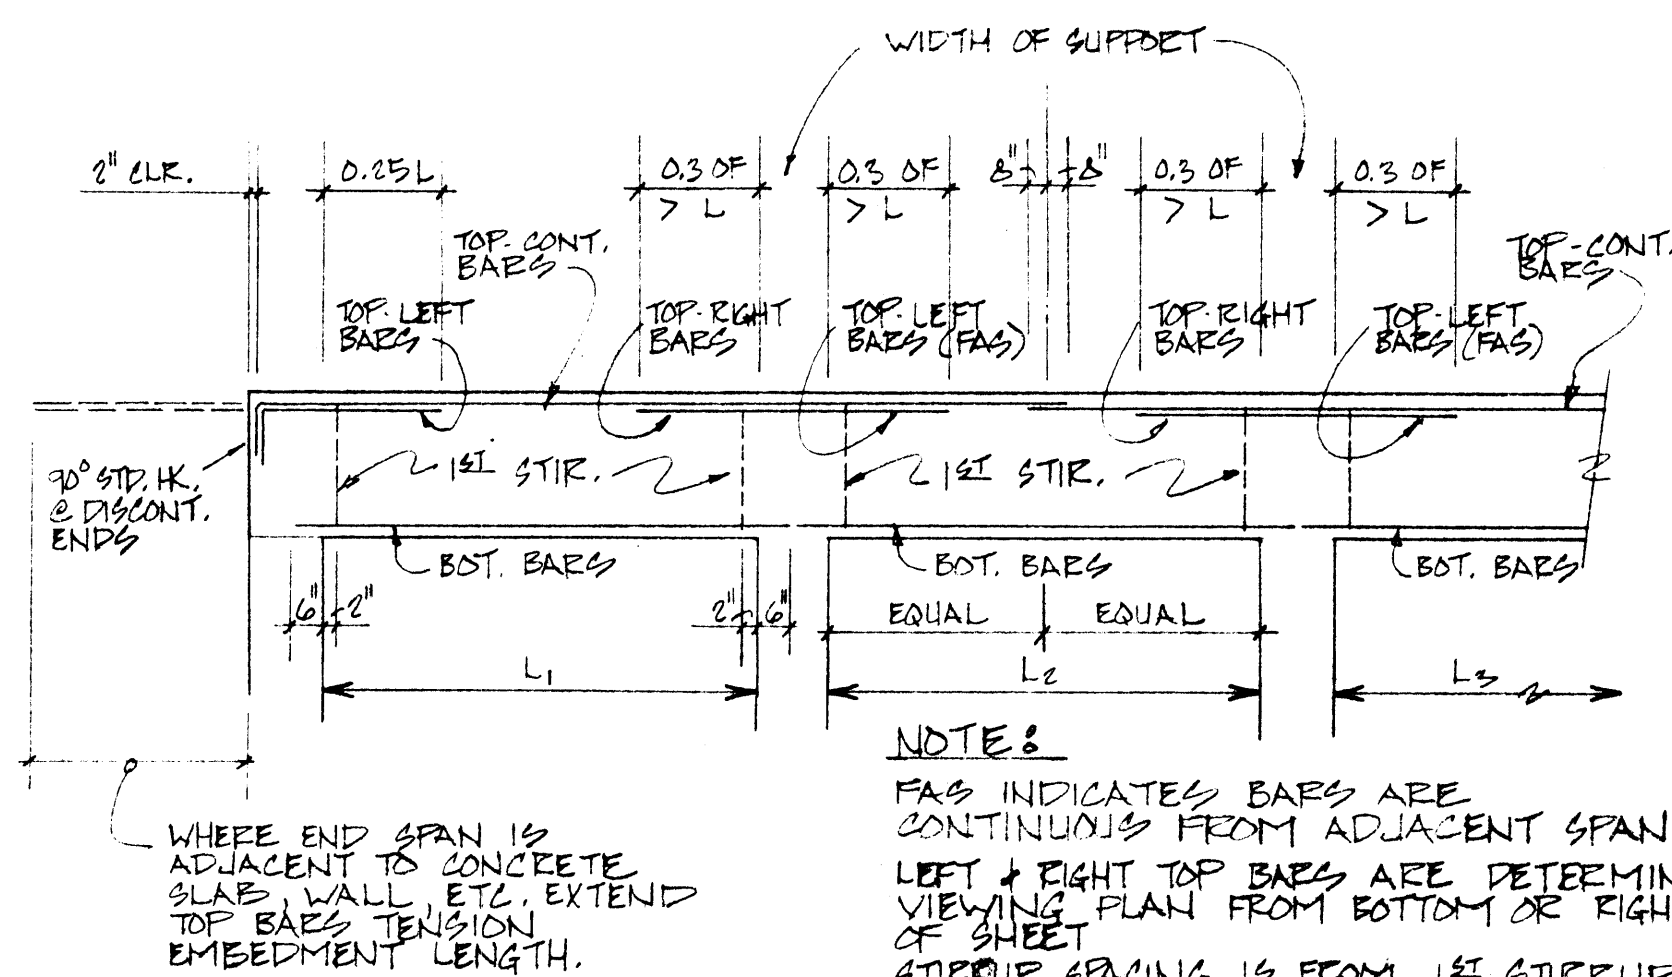 WIDTH OF SUPPORT
2" CLR.
0.25 L
0.3 OF
> L
0.3 OF
> L
8"
8"
0.3 OF
> L
0.3 OF
> L
TOP-CONT.
BARS
TOP-CONT.
BARS
TOP-LEFT
BARS
TOP-RIGHT
BARS
TOP-LEFT
BARS (FAS)
TOP-RIGHT
BARS
TOP-LEFT
BARS (FAS)
90° STD. HK.
@ DISCONT.
ENDS
1ST STIR.
1ST STIR.
BOT. BARS
BOT. BARS
BOT. BARS
6" 2"
2" 6"
EQUAL EQUAL
L1
L2
L3
WHERE END SPAN IS
ADJACENT TO CONCRETE
SLAB, WALL, ETC. EXTEND
TOP BARS TENSION
EMBEDMENT LENGTH.
NOTE:
FAS INDICATES BARS ARE
CONTINUOUS FROM ADJACENT SPAN
LEFT & RIGHT TOP BARS ARE DETERMIN
VIEWING PLAN FROM BOTTOM OR RIGH
OF SHEET
STIRRUP SPACING IS FROM 1ST STIRRUP